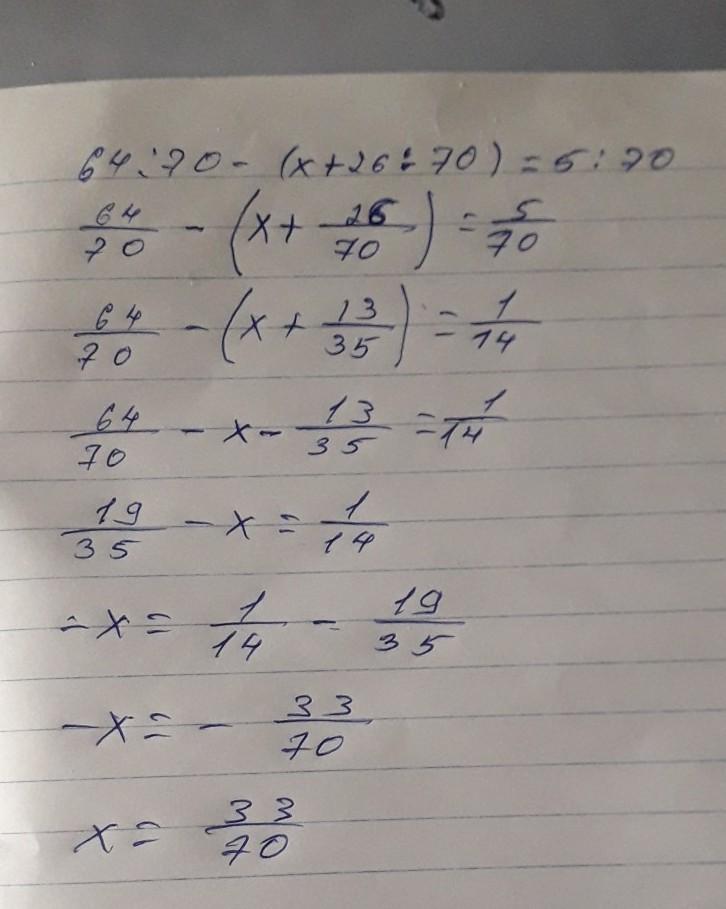 64:70-(x+26:70)=5:70
64/70-(x+26/70)=5/70
64/70-(x+13/35)=1/14
64/70-x-13/35=1/14
19/35-x=1/14
-x=1/14-19/35
-x=-33/70
x=33/70